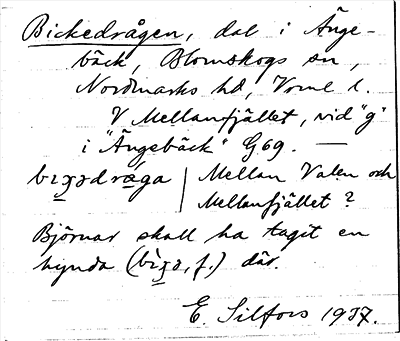 Bickedrågen, dal i Änge-
bäck, Blomskogs sn,
Nordmarks hd, Vrml l.
V Mellanfjället, vid "g"
i "Ängebäck" G69. —
bɩʒədrǻga | Mellan Valen och
Mellanfjället?
Björnar skall ha tagit en
hynda (bɩ̀ʒə, f.) där.
E. Silfors 1937.